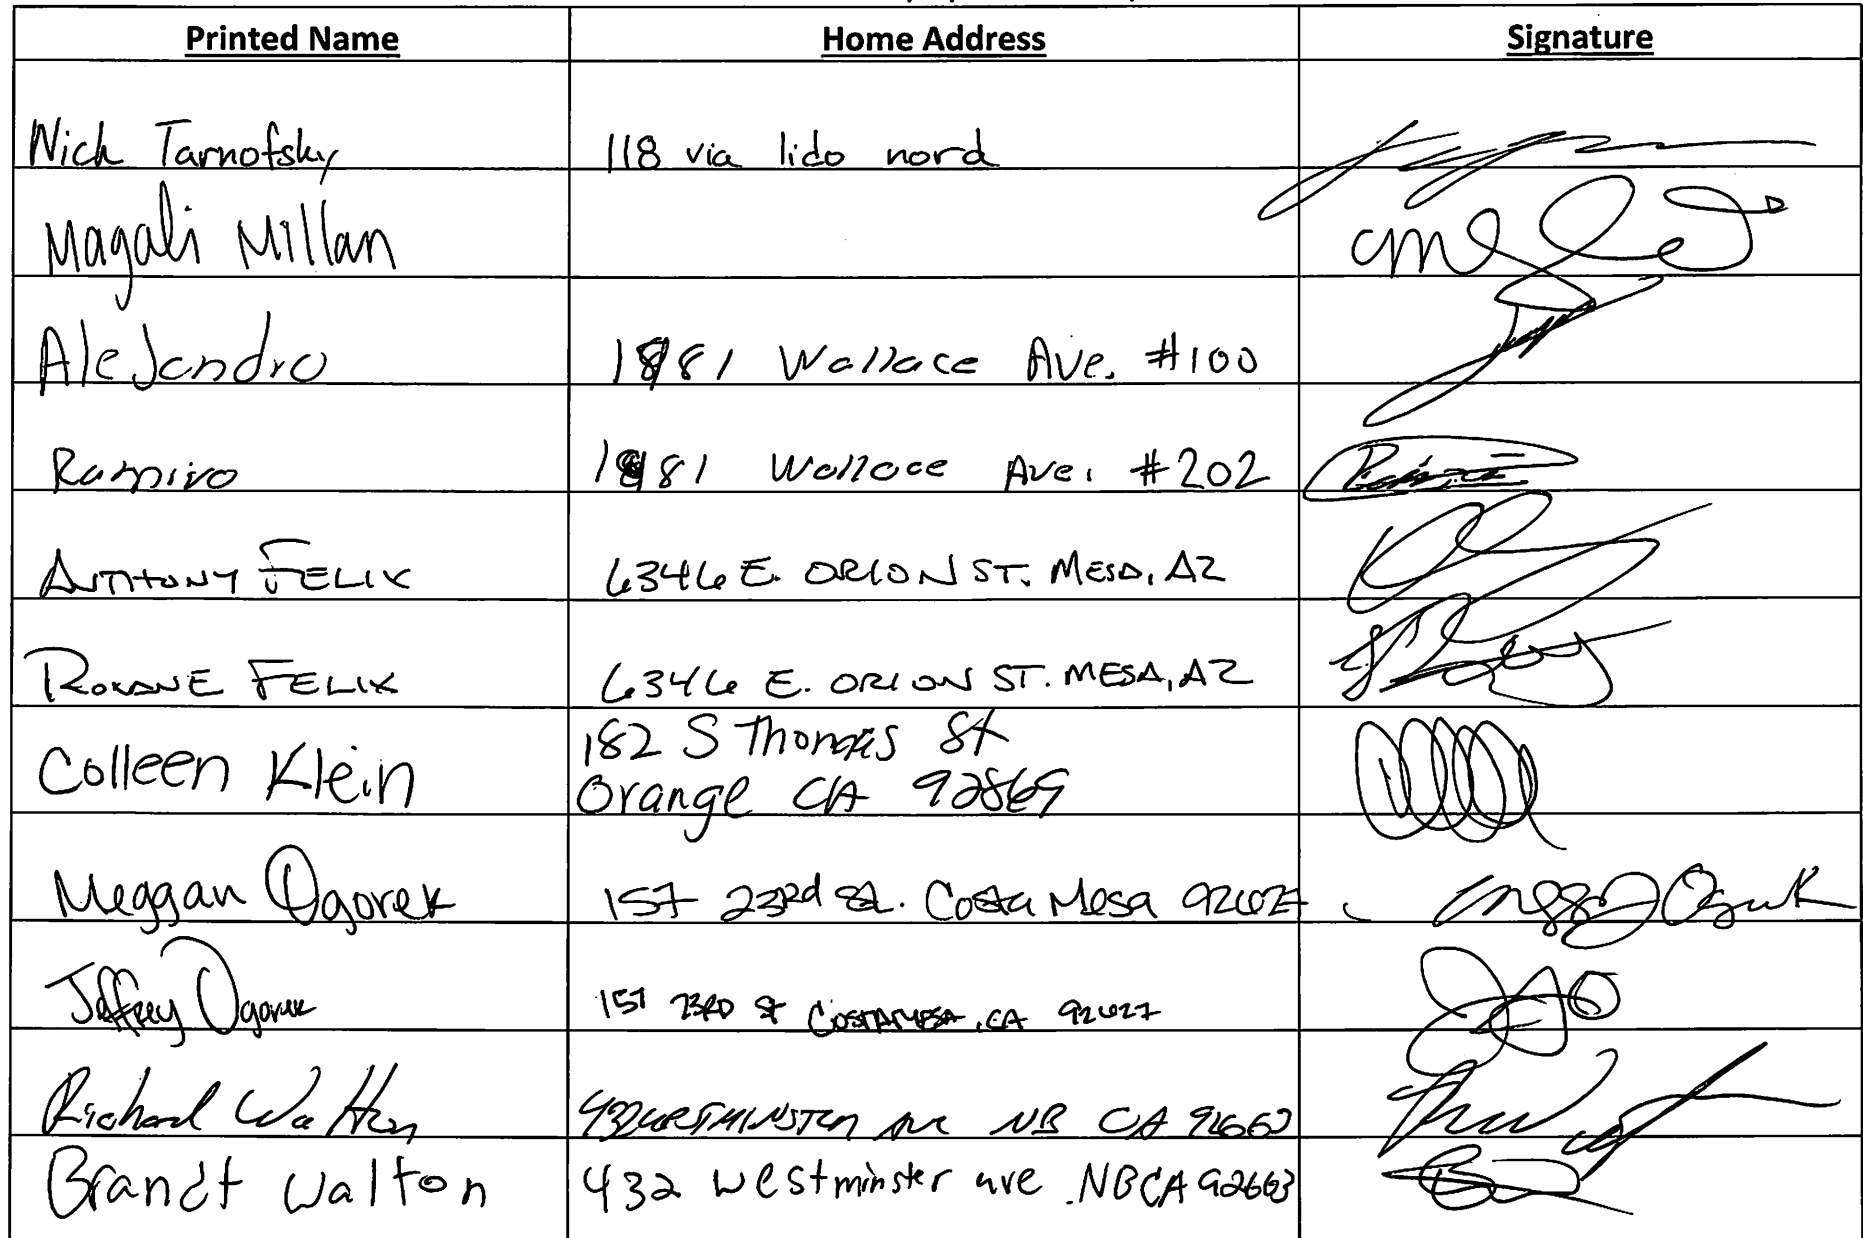 Printed Name Home Address Signature
Nich Tarnofsky 118 via lido nord
Magali Millan
AleJandro 1881 Wallace Ave. #100
Ramiro 1881 Wallace Ave. #202
ANTHONY FELIX 6346 E. ORION ST. MESA, AZ
ROXANE FELIX 6346 E. ORION ST. MESA, AZ
Colleen Klein 182 S Thomas St
Orange CA 92869
Meggan Ogorek 157 23rd St. Costa Mesa 92627
Jeffrey Ogorek 157 23RD St COSTA MESA, CA 92627
Richard Walton 432 WESTMINSTER Ave NB CA 92663
Brandt Walton 432 westminster ave .NB CA 92663